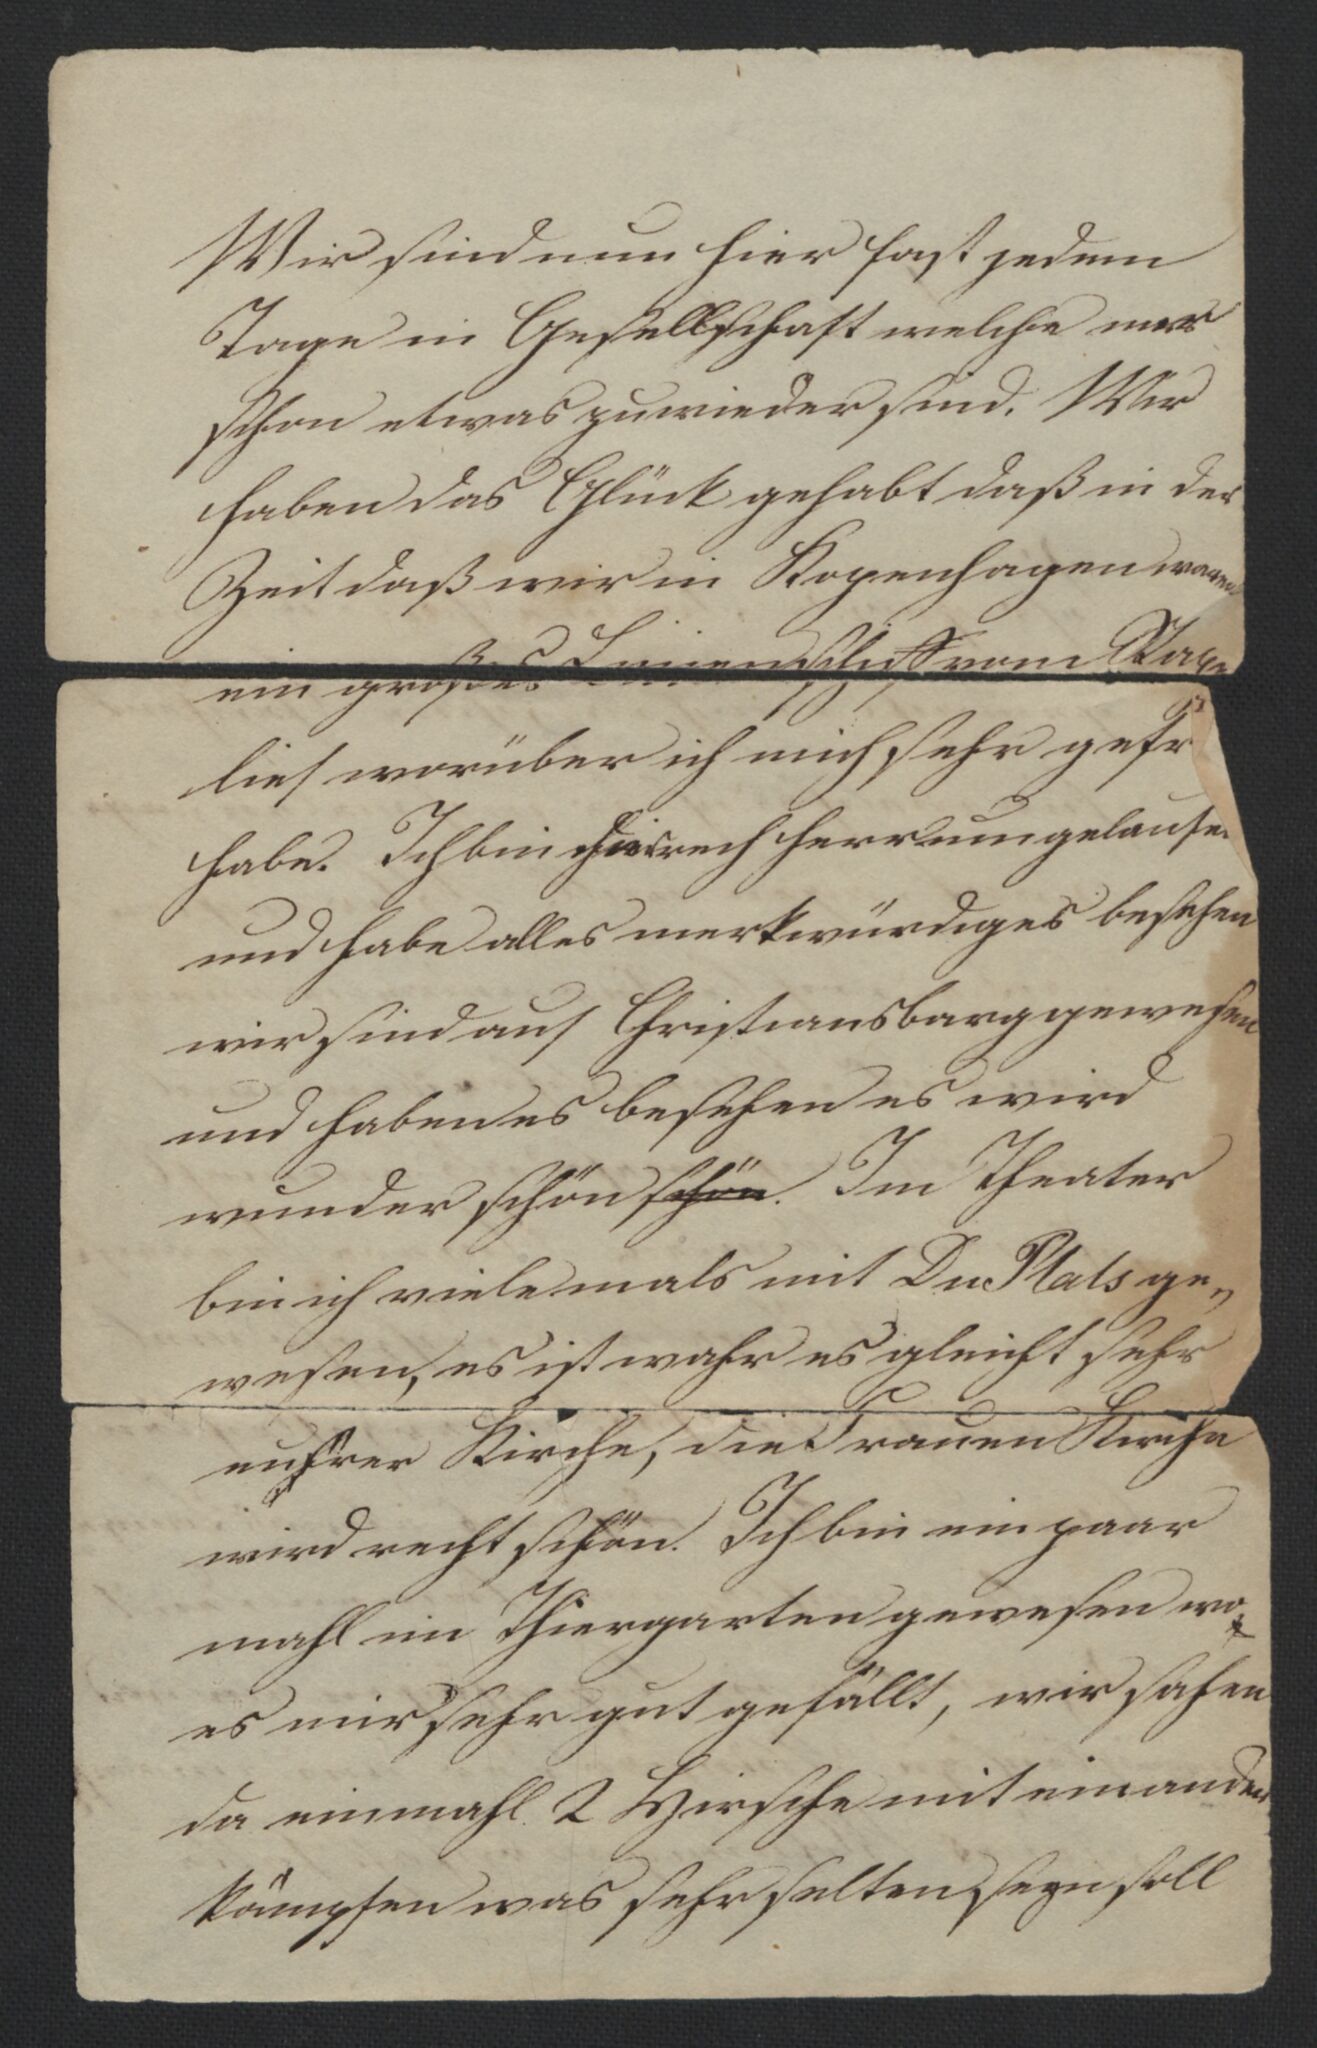 Wir sind nun hier fast jedem
Tage in Gesellschaft welche mir
schon etwas zuwieder sind. Wir
haben das Glück gehabt daß in der
Zeit daß wir in Kopenhagen waren
ein großes Linienschiff vom Stape
lief worüber ich mich sehr gefr
habe. Ich bin hier rech herrumgelaufen
und habe alles merkwürdiges besehen
wir sind auf Christiansborg gewesen
und haben es besehen es wird
wunder schön schön. Im Theater
bin ich viele mals mit Du Plats ge„
wesen, es ist wahr es gleicht sehr
unsrer Kirche, die Frauen Kirche
wird recht schön. Ich bin ein paar
mahl im Thiergarten gewesen wo
es mir sehr gut gefällt, wir sahen
da einmahl 2 Hirsche mit einander
kämpfen was sehr selten seyn soll